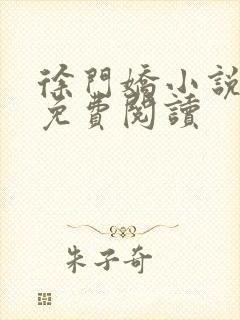 徐門嬌小說
免費閱讀
朱子奇